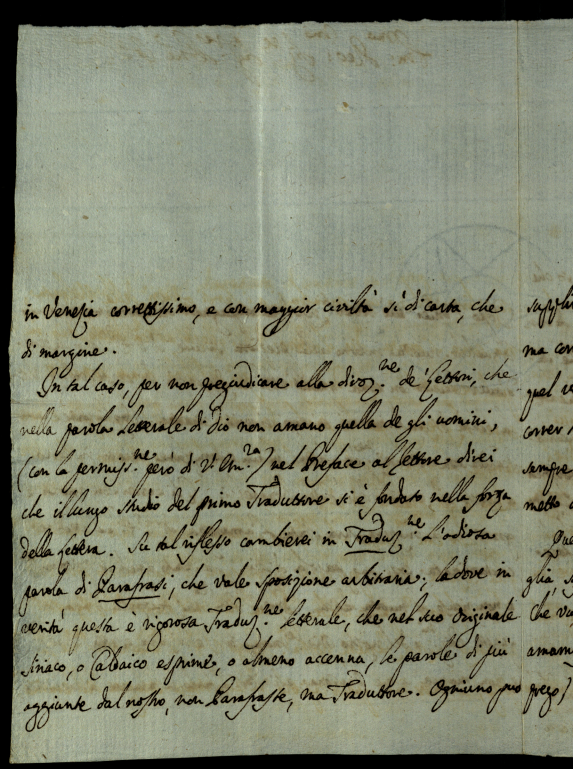 in Venezia correttissimo, e con maggior civiltà sì di carta, che
di margine.
In tal caso, per non pregiudicare alla divoz.ne de' Lettori, che
nella parola Letterale di Dio non amano quella de gli uomini,
(con la permiss.ne però di V. Em.za) nel Preface al lettore direi
che il lungo studio del primo Traduttore si è fondato nella forza
della lettera. Su tal riflesso cambierei in Traduz.ne L'odiosa
parola di Parafrasi, che vale sposizione arbitraria; la dove in
verità questa è rigorosa Traduz.ne letterale, che nel suo Originale
siriaco, o Caldaico esprime, o almeno accenna, le parole di più
aggiunte dal nostro, non Parafraste, ma Traduttore. Ogniuno può
ma
quel
correr
sempre
metto
glia
che
prego)